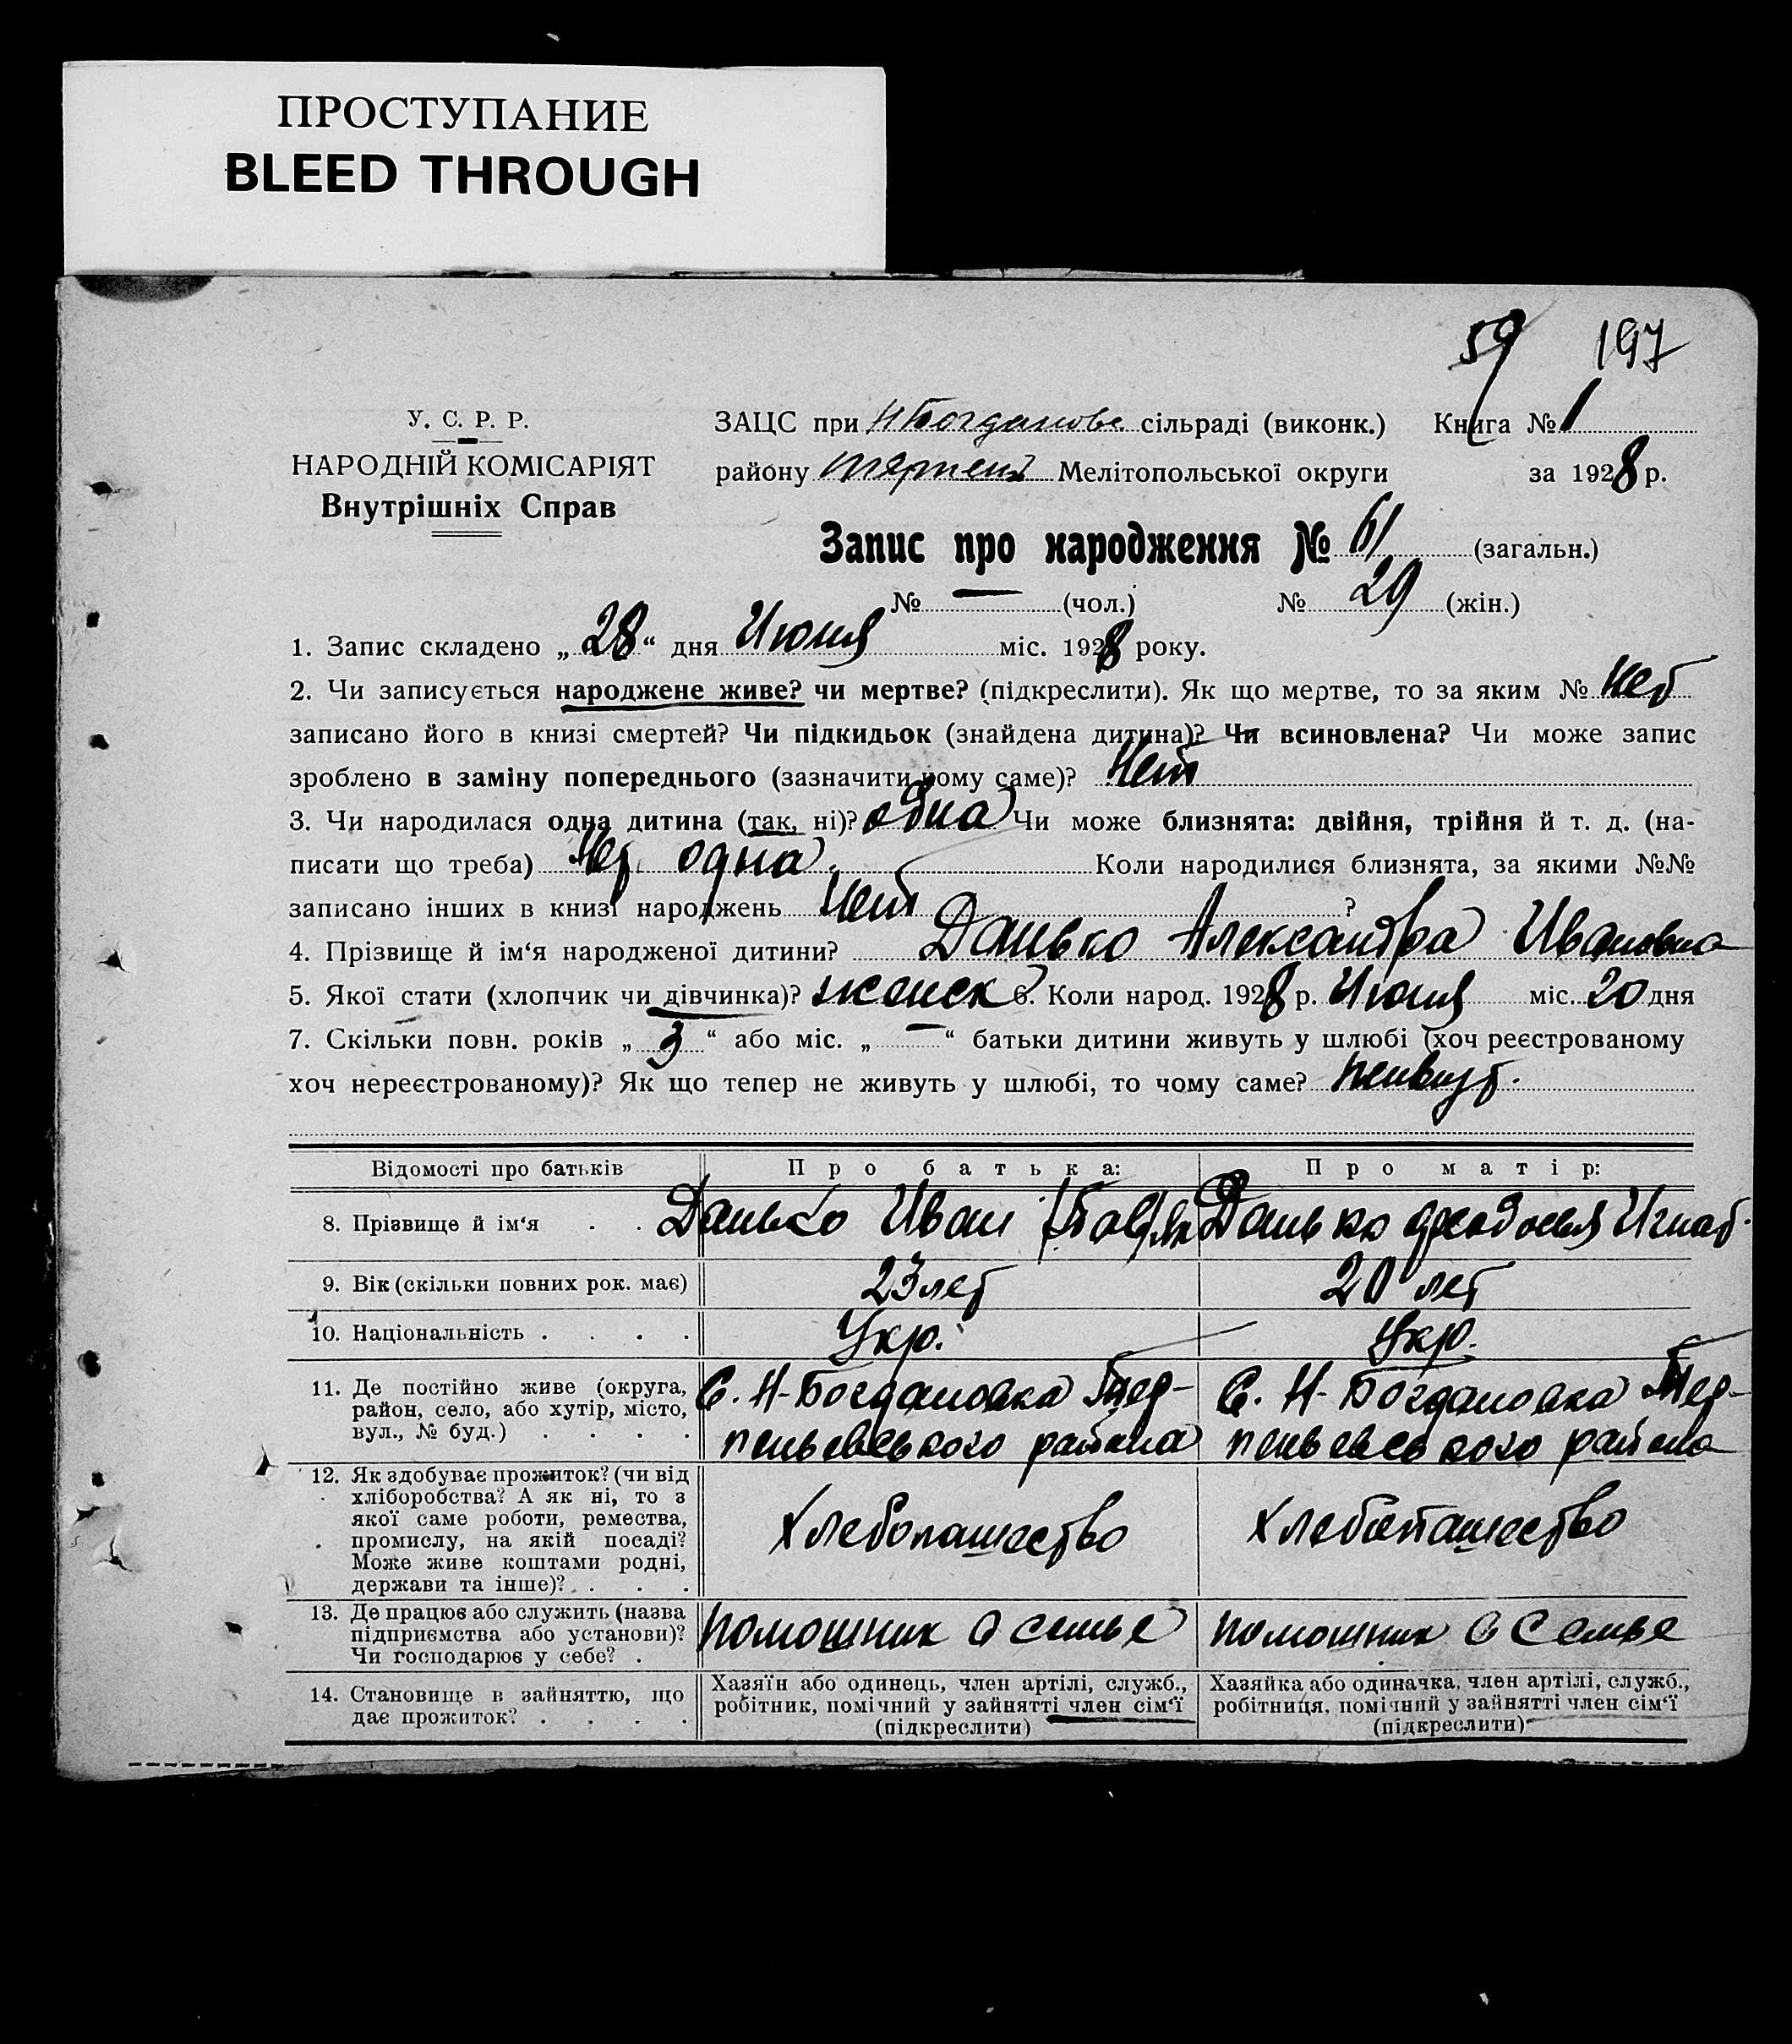 ПРОСТУПАНИЕ
BLEED THROUGH
59 197
У. С. Р. Р.
НАРОДНІЙ КОМІСАРІЯТ
Внутрішніх Справ
ЗАЦС при Н Богданове сільраді (виконк.) Книга № 1
району Терпен Мелітопольської округи за 1928 р.
Запис про народження № 61 (загальн.)
№ — (чол.) № 29 (жін.)
1. Запис складено „ 28 “ дня Июня міс. 1928 року.
2. Чи записується народжене живе? чи мертве? (підкреслити). Як що мертве, то за яким № нет
записано його в книзі смертей? Чи підкидьок (знайдена дитина)? Чи всиновлена? Чи може запис
зроблено в заміну попереднього (зазначити кому саме)? Нет
3. Чи народилася одна дитина (так, ні)? одна Чи може близнята: двійня, трійня й т. д. (на-
писати що треба) Нет одна. Коли народилися близнята, за якими №№
записано інших в книзі народжень Нет ?
4. Прізвище й ім‘я народженої дитини? Данько Александра Ивановна
5. Якої стати (хлопчик чи дівчинка)? женск 6. Коли народ. 1928 р. Июня міс. 20 дня
7. Скільки повн. років „ 3 “ або міс. „ — “ батьки дитини живуть у шлюбі (хоч реєстрованому
хоч нереєстрованому)? Як що тепер не живуть у шлюбі, то чому саме?
Відомості про батьків Про батька: Про матір:
8. Прізвище й ім‘я . . Данько Иван Данько Феодосия Игнат.
9. Вік (скільки повних рок. має) 23 лет 20 лет
10. Національність . . . . Укр. Укр.
11. Де постійно живе (округа,
район, село, або хутір, місто,
вул., № буд.) . . . .
С. Н-Богдановка Тер-
пеньевського района
С. Н-Богдановка Тер-
пеньевського района
12. Як здобуває прожиток? (чи від
хліборобства? А як ні, то з
якої саме роботи, ремества,
промислу, на якій посаді?
Може живе коштами родні,
держави та інше)? . . .
Хлебопашество Хлебопашество
13. Де працює або служить (назва
підприємства або установи)?
Чи господарює у себе? .
помошник в семье помошник в Семье
14. Становище в зайняттю, що
дає прожиток? . . . .
Хазяїн або одинець, член артілі, служб.,
робітник, помічний у зайнятті член сім‘ї
(підкреслити)
Хазяйка або одиначка, член артілі, служб.,
робітниця, помічний у зайнятті член сім‘ї
(підкреслити)